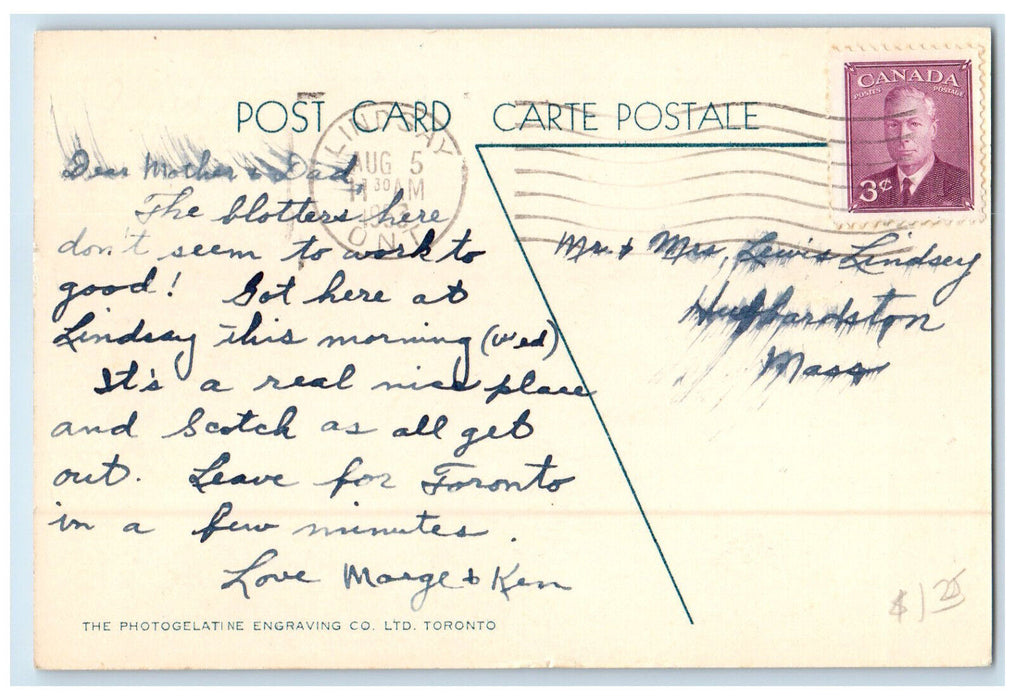 POST CARD CARTE POSTALE
CANADA
POSTES POSTAGE
3¢
LINDSAY
AUG 5
11 30 AM
ONT
Dear Mother & Dad,
The blotters here
don't seem to work to
good! Got here at
Lindsay this morning (Wed)
It's a real nice place
and Scotch as all get
out. Leave for Toronto
in a few minutes.
Love Marge & Ken
Mr. & Mrs. Lewis Lindsey
Hubbardston
Mass
THE PHOTOGELATINE ENGRAVING CO. LTD. TORONTO
$1 25